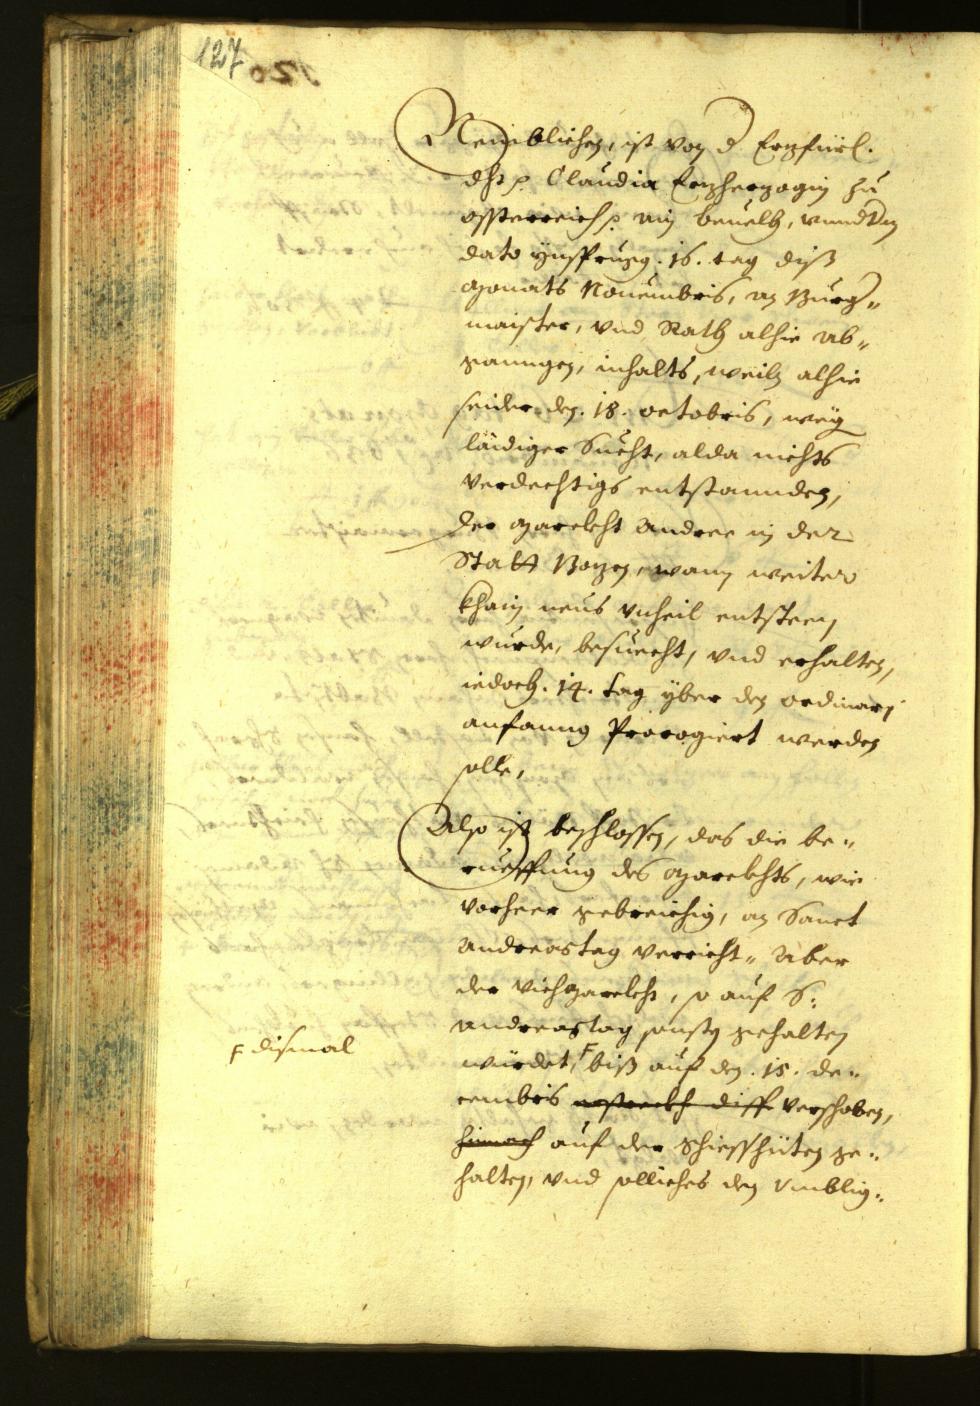 127
Nemblichen, ist von d. Erzfürl.
dht p. Claudia Erzherzogin zu
Össterreich p. ain beuelh, vnndter
dato Ynsprugg. 16. tag diß
Monats Nouembris, an Burg„
maister, vnd Rath alhie ab„
ganngen, inhalts, weiln alhie
seider den. 18. octobris, weg
laidiger Sucht, alda nichts
verdechtigs entstannden,
der Marckht Andree in der
Statt Bozen, wann weiter
khain neus vnheil entsteen
wurde, besuecht, vnd erhalten,
iedoch. 14. tag yber den ordinari
anfanng Prorogiert werden
solle,
Also ist beschlossen, das die be„
rueffung des Marckhts, wie
vorheer gebreichig, an Sanct
Andreastag verricht„ Aber
der Viehmarckht, so auf S:
Andreastag sonsten gehalten
würdet, F biß auf den. 15. de„
cembris verschoben,
auf der Schiesshüten ge„
halten, vnd solliches den Vmblig„
F dismal